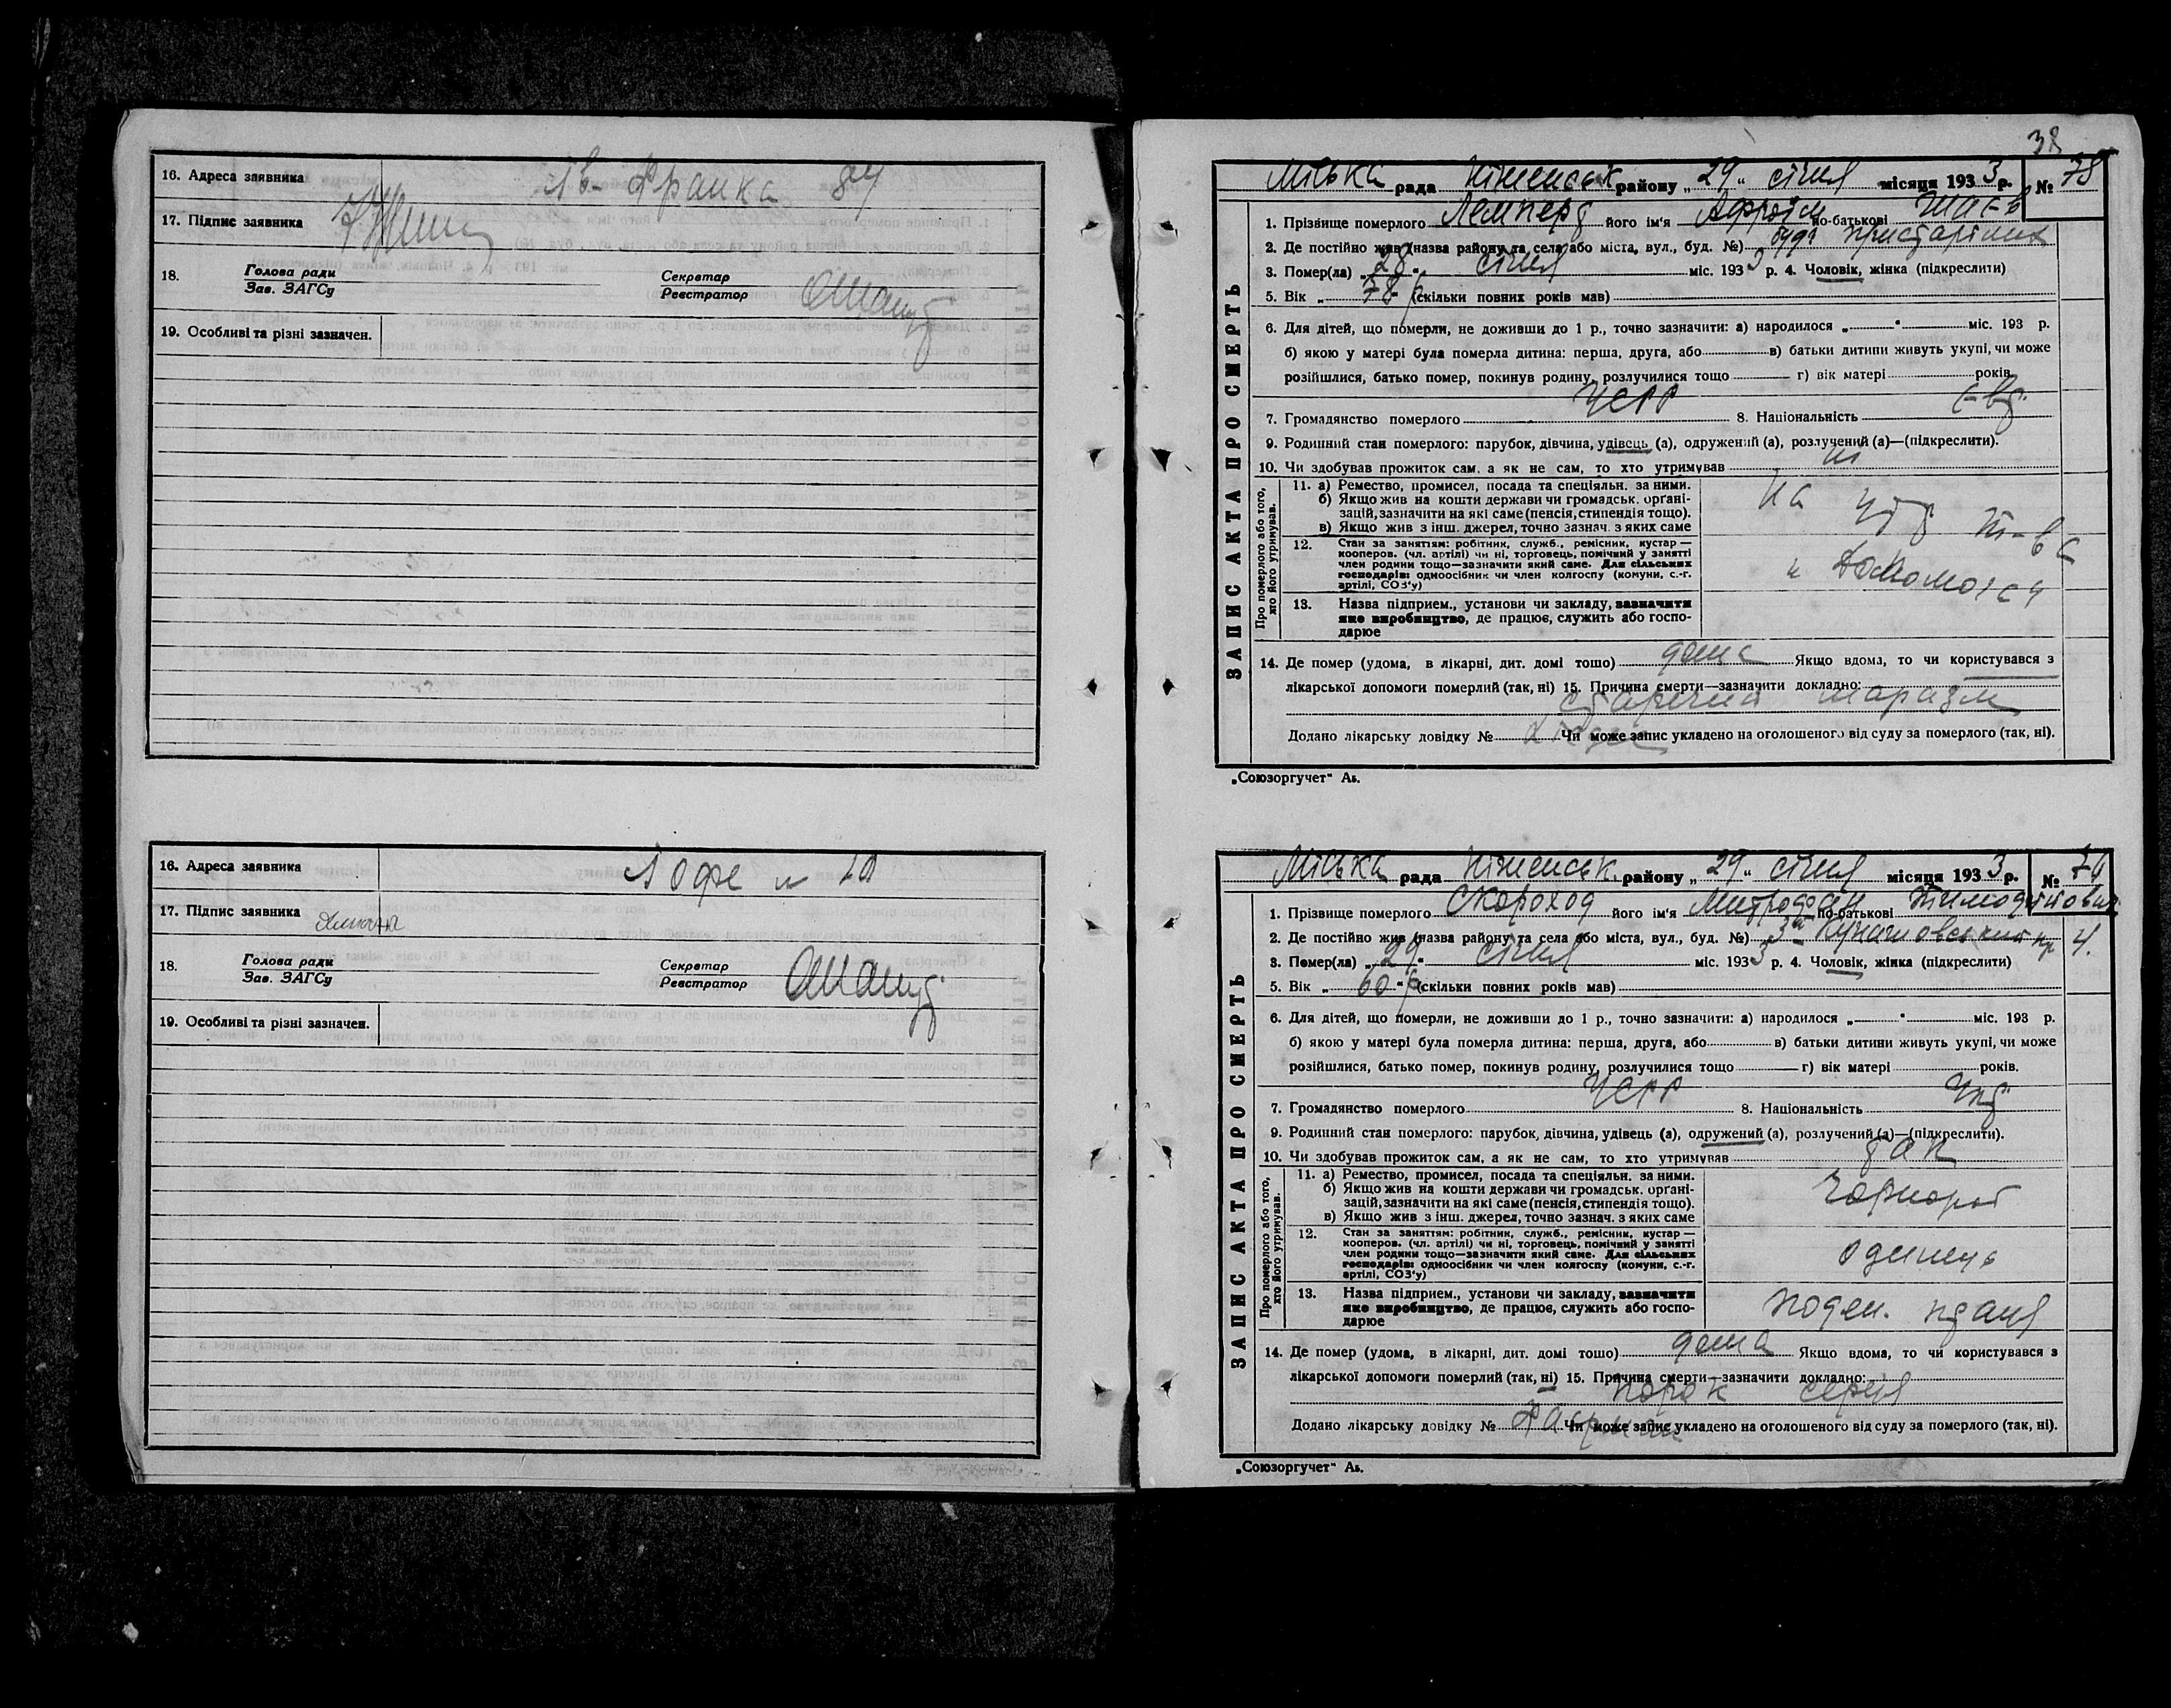 16. Адреса заявника Ів- Франка 84
17. Підпис заявника
18. Голова ради Секретар
Зав. ЗАГСу Реєстратор
19. Особливі та різні зазначен.
16. Адреса заявника 10
17. Підпис заявника
18. Голова ради Секретар
Зав. ЗАГСу Реєстратор
19. Особливі та різні зазначен.
38
Міська рада Ніженськ району „29“ січня місяця 1933 р. № 78
ЗАПИС АКТА ПРО СМЕРТЬ
1. Прізвище померлого Лемперт його ім'я Афроїм по-батькові
2. Де постійно жив (назва району та села або міста, вул., буд. №) буд. пристарілих
3. Помер(ла) „28“ січня міс. 1933 р. 4. Чоловік, жінка (підкреслити)
5. Вік „78 р (скільки повних років мав)
6. Для дітей, що померли, не доживши до 1 р., точно зазначити: а) народилося „ “ міс. 193 р.
б) якою у матері була померла дитина: перша, друга, або в) батьки дитини живуть укупі, чи може
розійшлися, батько помер, покинув родину, розлучилися тощо г) вік матері років
7. Громадянство померлого УСРР 8. Національність Євр.
9. Родинний стан померлого: парубок, дівчина, удівець (а), одружений (а), розлучений (а)—(підкреслити).
10. Чи здобував прожиток сам, а як не сам, то хто утримував ні
Про померлого або того, хто його утримував.
11. а) Ремество, промисел, посада та спеціяльн. за ними.
б) Якщо жив на кошти держави чи громадськ. органі-
зацій, зазначити на які саме (пенсія, стипендія тощо).
в) Якщо жив з інш. джерел, точно зазнач. з яких саме
На утр т-ва
допомога
12. Стан за заняттям: робітник, служб., ремісник, кустар—
кооперов. (чл. артілі) чи ні, торговець, помічний у занятті
член родини тощо—зазначити який саме. Для сільських
господарів: одноосібник чи член колгоспу (комуни, с.-г.
артілі, СОЗ'у)
13. Назва підприєм., установи чи закладу, зазначити
яке виробництво, де працює, служить або госпо-
дарює
14. Де помер (удома, в лікарні, дит. домі тощо) дома Якщо вдома, то чи користувався з
лікарської допомоги померлий (так, ні) 15. Причина смерти—зазначити докладно:
старечий маразм
Додано лікарську довідку № Чи може запис укладено на оголошеного від суду за померлого (так, ні).
„Союзоргучет“ Аь.
Міська рада Ніженськ. району „29“ січня місяця 1933 р. №
ЗАПИС АКТА ПРО СМЕРТЬ
1. Прізвище померлого Скороход його ім'я Митрофан по-батькові Тимофійович
2. Де постійно жив (назва району та села або міста, вул., буд. №) 3й Кунашовський пр 4.
3. Помер(ла) „29“ січня міс. 1933 р. 4. Чоловік, жінка (підкреслити)
5. Вік „60“ р (скільки повних років мав)
6. Для дітей, що померли, не доживши до 1 р., точно зазначити: а) народилося „ “ міс. 193 р.
б) якою у матері була померла дитина: перша, друга, або в) батьки дитини живуть укупі, чи може
розійшлися, батько помер, покинув родину, розлучилися тощо г) вік матері років.
7. Громадянство померлого УСРР 8. Національність Укр
9. Родинний стан померлого: парубок, дівчина, удівець (а), одружений (а), розлучений (а)—(підкреслити).
10. Чи здобував прожиток сам, а як не сам, то хто утримував так
Про померлого або того, хто його утримував.
11. а) Ремество, промисел, посада та спеціяльн. за ними.
б) Якщо жив на кошти держави чи громадськ. органі-
зацій, зазначити на які саме (пенсія, стипендія тощо).
в) Якщо жив з інш. джерел, точно зазнач. з яких саме
Чорнороб
12. Стан за заняттям: робітник, служб., ремісник, кустар—
кооперов. (чл. артілі) чи ні, торговець, помічний у занятті
член родини тощо—зазначити який саме. Для сільських
господарів: одноосібник чи член колгоспу (комуни, с.-г.
артілі, СОЗ'у)
одинець
13. Назва підприєм., установи чи закладу, зазначити
яке виробництво, де працює, служить або госпо-
дарює
поден. праця
14. Де помер (удома, в лікарні, дит. домі тощо) дома Якщо вдома, то чи користувався з
лікарської допомоги померлий (так, ні) 15. Причина смерти—зазначити докладно:
порок серця
Додано лікарську довідку № Чи може запис укладено на оголошеного від суду за померлого (так, ні).
„Союзоргучет“ Аь.